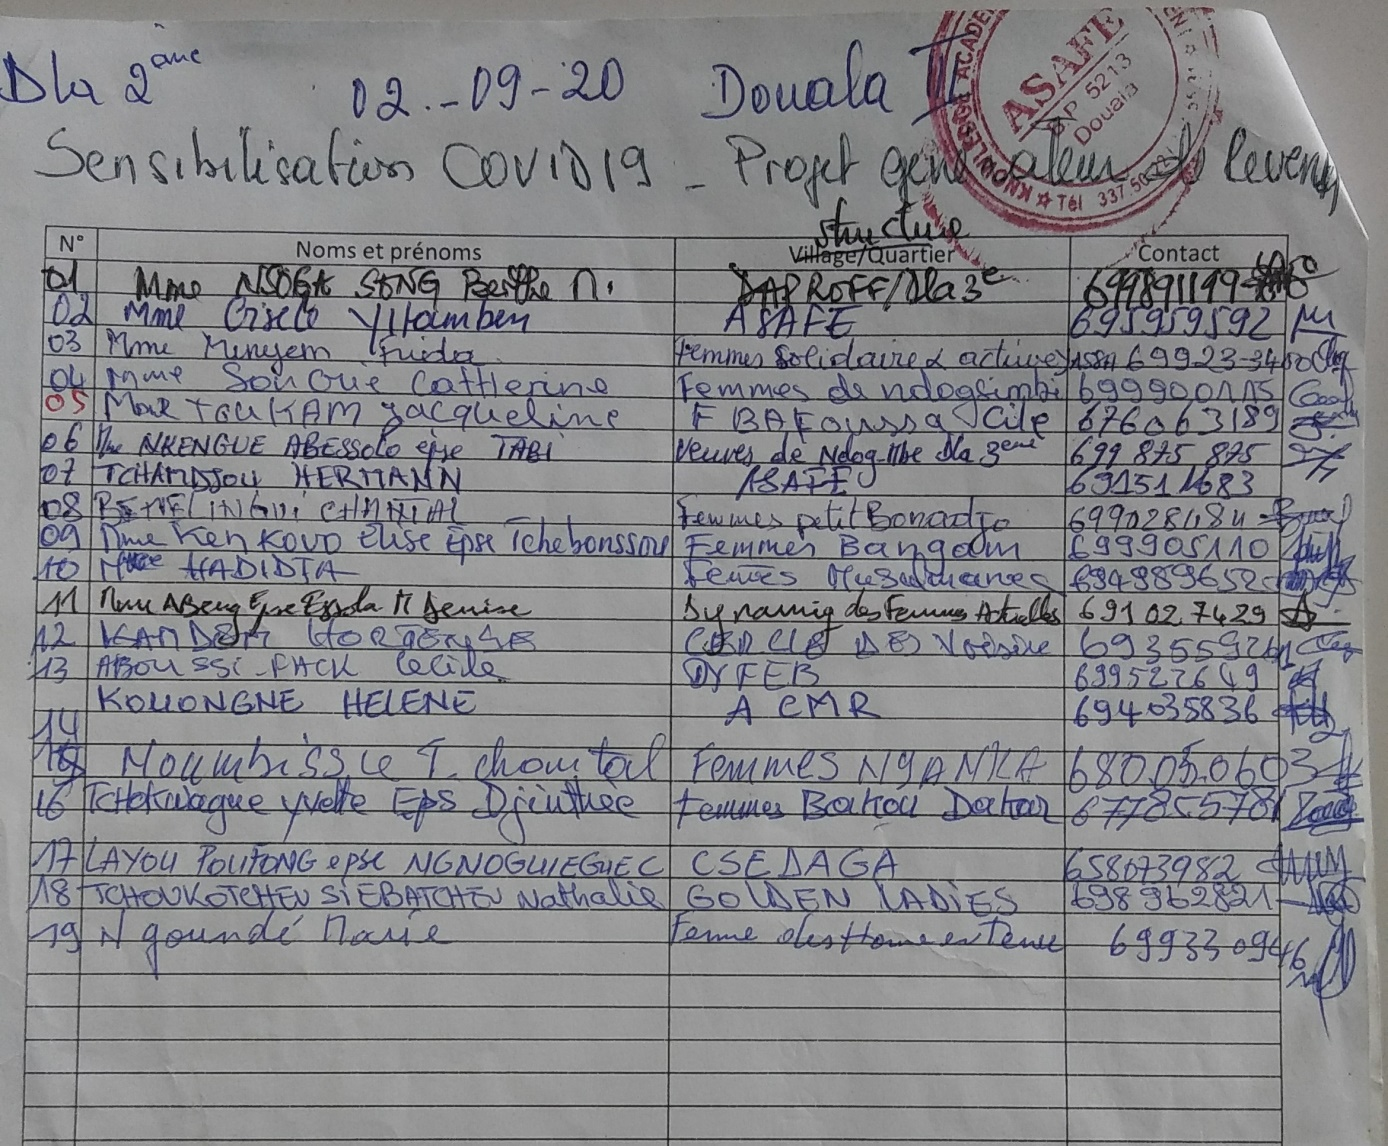 Dla 2ème 02.-09-20 Douala II
Sensibilisation COVID19 - Projet générateur de Revenu
ASAFE
BP 5213
Douala
Tél 337 50
Structure
N° Noms et prénoms Village/Quartier Contact
01 Mme NSOGA SONG Berthe M. DAPROFF/Dla 3e
02 Mme Gisele Yitamben ASAFE 695959592
03 Mme Menyem Frida Femmes Solidaires & actives 69923-34
04 Mme SonGue Catherine Femmes de ndogsimbi 699900115
05 TOUKAM Jacqueline F BAFoussa Cité 676063189
06 Mme NKENGUE ABESSOLO epse TABI Veuves de Ndog Dla 3eme 699 875 875
07 TCHAMDJOU HERMANN ASAFE 691511683
08 Femmes petit Bonadjo 699028484
09 Mme KenKovo Elise Epse Tchebonssou Femmes Bangam 699905110
10 Mme HADIDJA Femmes Musulmanes 694989652
11 Mme ABeng Epse Essola M Denise Dynamiq des Femmes Actuelles 691 02 7429
12 KAMDEM HORTENSE 69355926
13 ABOUSSI-FACK Cecile DYFEB 699527649
14 KOUONGNE HELENE A CMR 694035836
15 Moumbissie T. chantal Femmes NYANKA 680.05.0603
16 Tchokwague yvette Eps Djinthée Femmes Bakou Dakar 67785578
17 LAYOU POUFONG epse NGNOGUIEGUEC CSEDAGA 658073982
18 TCHOUKOTCHEU SIEBATCHEU Nathalie GOLDEN LADIES 698962821
19 Ngoundé Marie 699330946